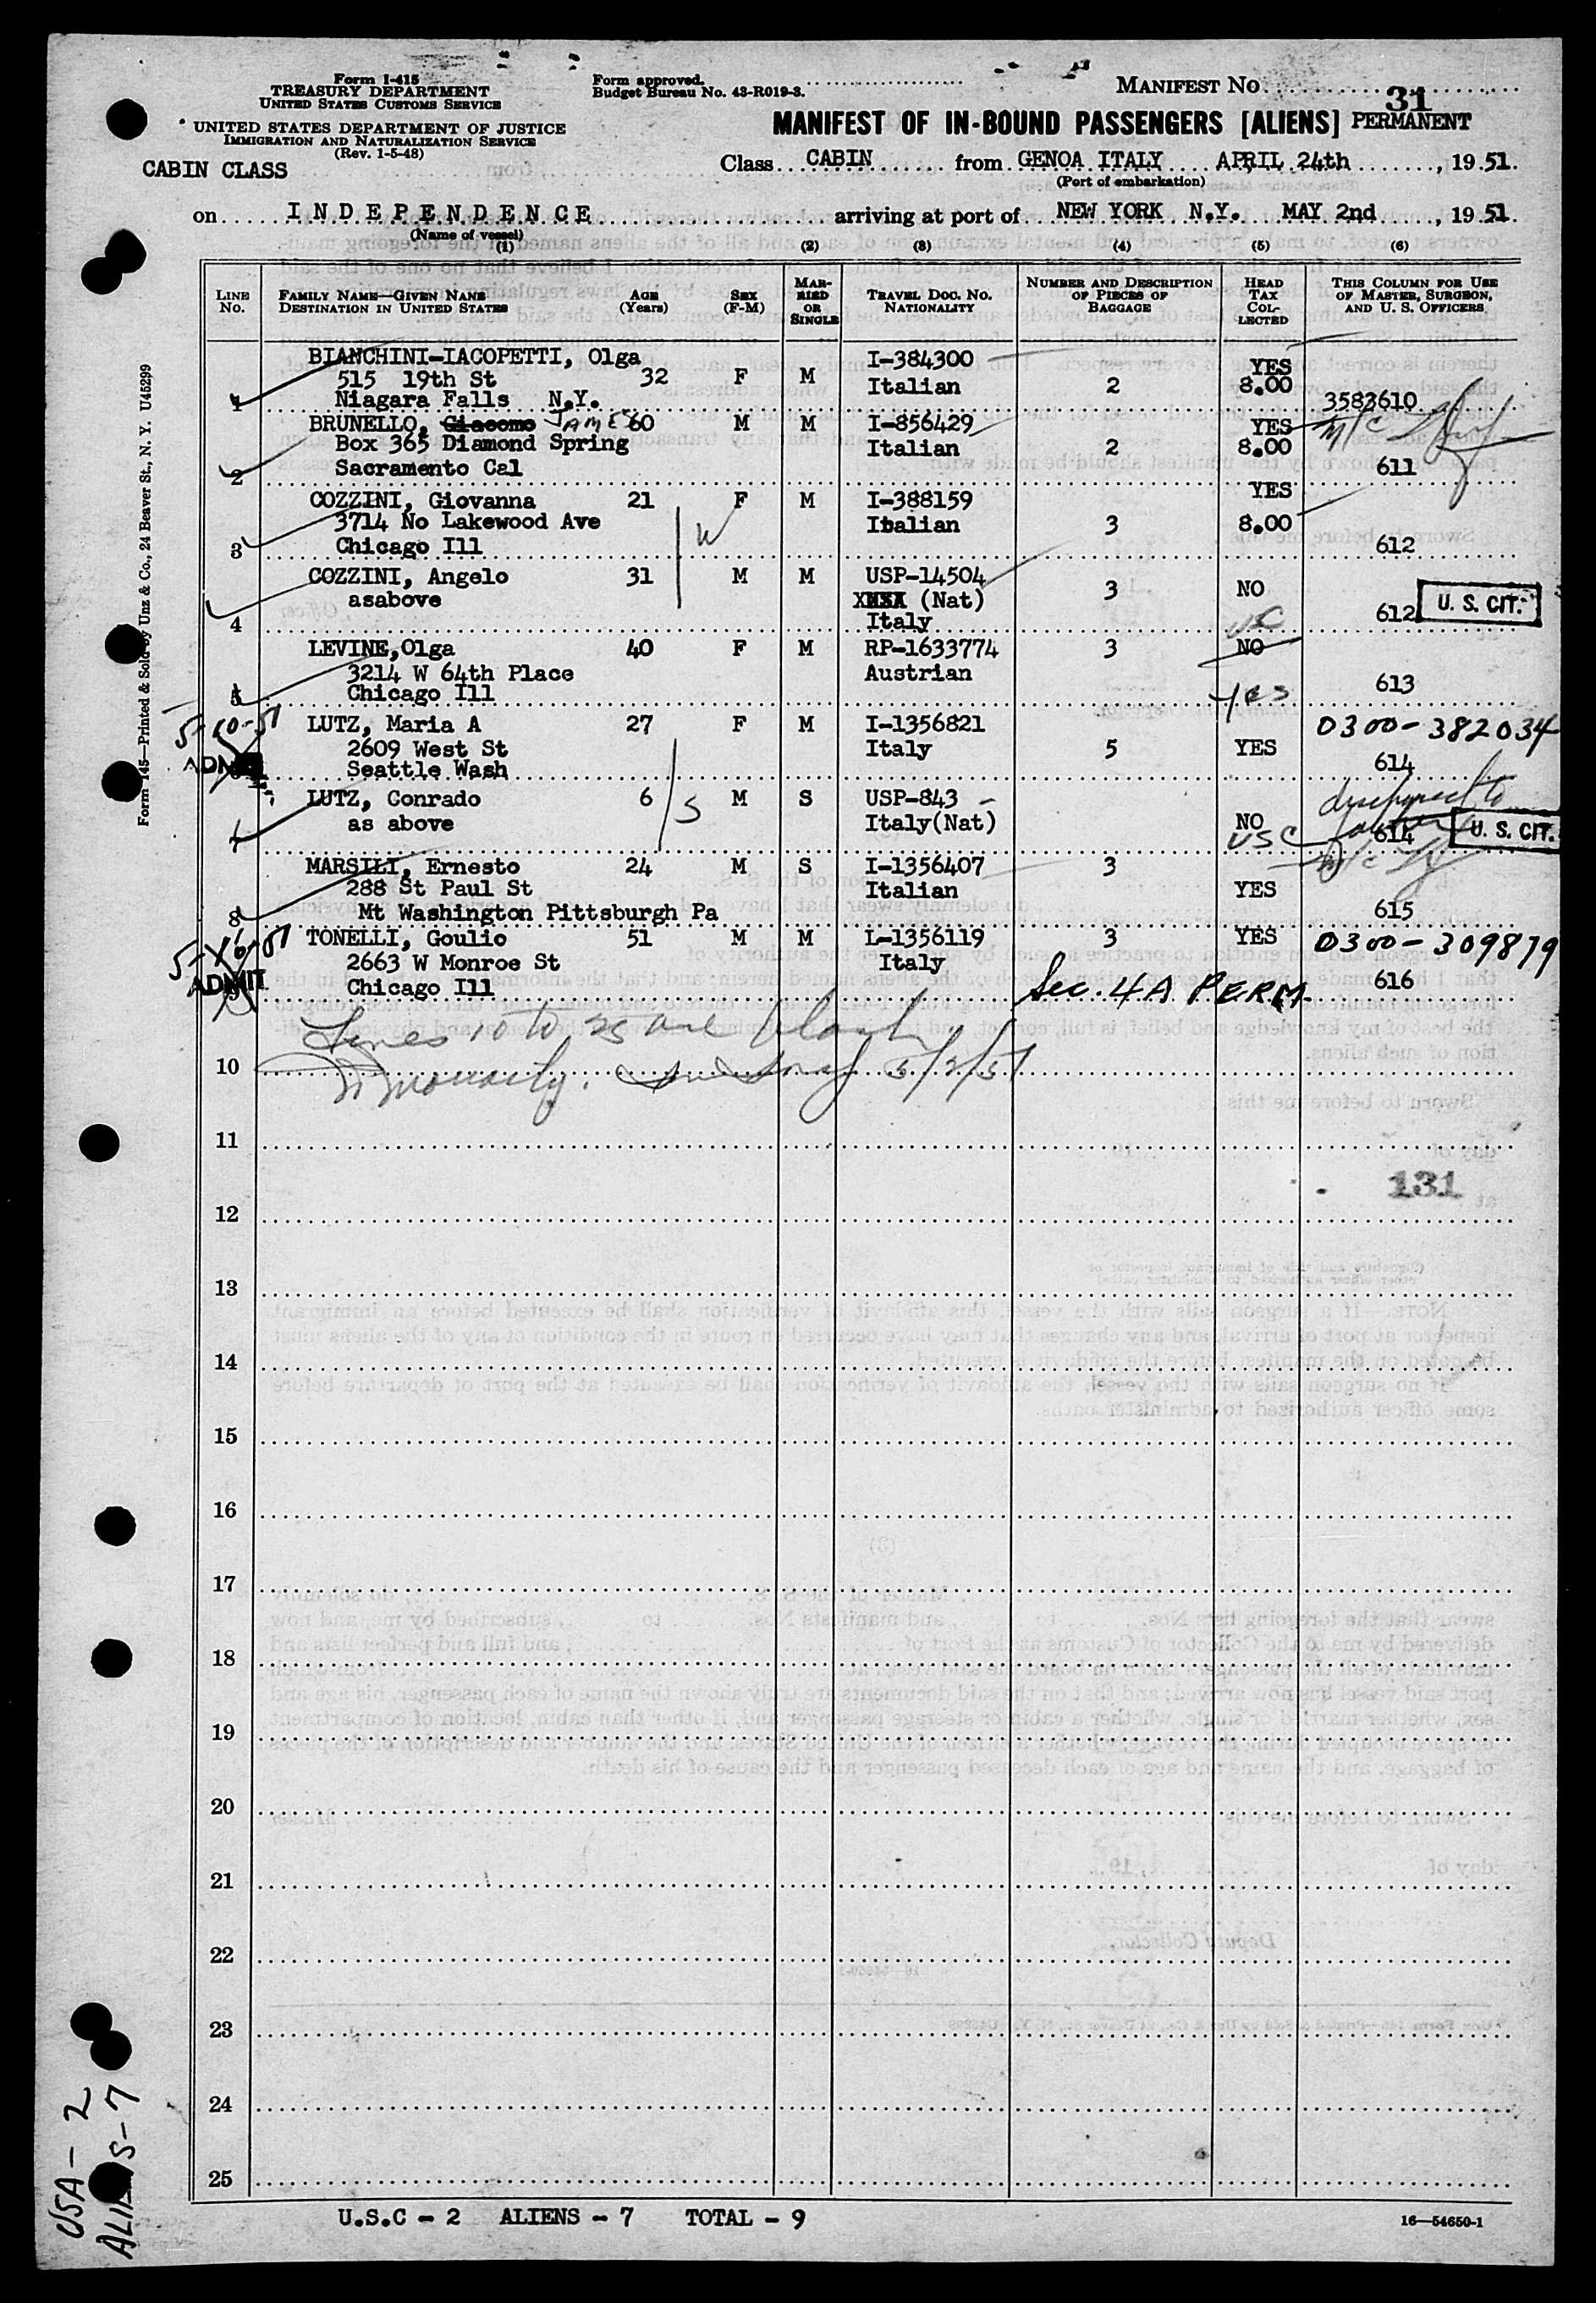 Form I-415
TREASURY DEPARTMENT
UNITED STATES CUSTOMS SERVICE
UNITED STATES DEPARTMENT OF JUSTICE
IMMIGRATION AND NATURALIZATION SERVICE
(Rev. 1-5-48)
CABIN CLASS
Form approved.
Budget Bureau No. 43-R019-3.
MANIFEST No.
31
MANIFEST OF IN-BOUND PASSENGERS [ALIENS] PERMANENT
Class CABIN from GENOA ITALY APRIL 24th, 1951.
(Port of embarkation)
on INDEPENDENCE arriving at port of NEW YORK N.Y. MAY 2nd, 1951.
(Name of vessel)
(1) (2) (3) (4) (5) (6)
LINE No. FAMILY NAME—GIVEN NAME DESTINATION IN UNITED STATES AGE (Years) SEX (F-M) MARRIED OR SINGLE TRAVEL DOC. NO. NATIONALITY NUMBER AND DESCRIPTION OF PIECES OF BAGGAGE HEAD TAX COLLECTED THIS COLUMN FOR USE OF MASTER, SURGEON, AND U. S. OFFICERS
BIANCHINI-IACOPETTI, Olga I-384300 YES
515 19th St 32 F M Italian 2 8.00
1 Niagara Falls N.Y. 3583610
BRUNELLO, Giacomo JAMES 60 M M I-856429 YES M/C
Box 365 Diamond Spring Italian 2 8.00
2 Sacramento Cal 611
COZZINI, Giovanna 21 F M I-388159 YES
3714 No Lakewood Ave W Italian 3 8.00
3 Chicago Ill 612
COZZINI, Angelo 31 M M USP-14504 3 NO
asabove XXXX (Nat) U. S. CIT.
4 Italy USC 612
LEVINE,Olga 40 F M RP-1633774 3 NO
3214 W 64th Place Austrian
5 Chicago Ill yes 613
5-10-51 LUTZ, Maria A 27 F M I-1356821 0300-382034
2609 West St Italy 5 YES
ADMIT Seattle Wash 614
LUTZ, Conrado 6 S M S USP-843
as above Italy(Nat) NO
7 USC 614 U. S. CIT.
MARSILI, Ernesto 24 M S I-1356407 3 M/C
288 St Paul St Italian YES
8 Mt Washington Pittsburgh Pa 615
5-16-51 TONELLI, Goulio 51 M M I-1356119 3 YES 0300-309879
2663 W Monroe St Italy
ADMIT 9 Chicago Ill Sec. 4A PERM. 616
Lines 10 to 25 are blank
10 5/2/51
11
131
12
13
14
15
16
17
18
19
20
21
22
23
24
25
U.S.C - 2 ALIENS - 7 TOTAL - 9
16—54650-1
Form 145—Printed & Sold by Unz & Co., 24 Beaver St., N. Y. U45299
USA - 2
ALIENS - 7